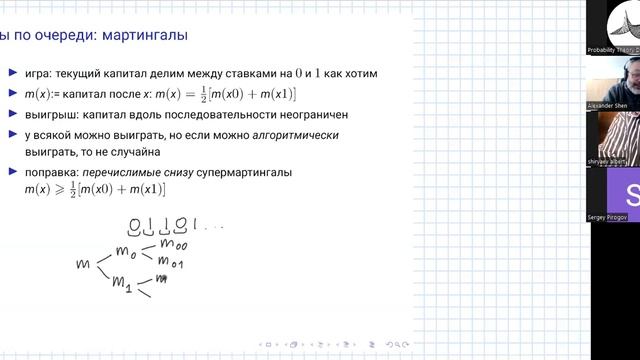 ы по очереди: мартингалы
игра: текущий капитал делим между ставками на 0 и 1 как хотим
m(x):= капитал после x: m(x) = ½[m(x0) + m(x1)]
выигрыш: капитал вдоль последовательности неограничен
у всякой можно выиграть, но если можно алгоритмически
выиграть, то не случайна
поправка: перечислимые снизу супермартингалы
m(x) ⩾ ½[m(x0) + m(x1)]
0 1 1 0 1 ...
m₀₀
m₀
m₀₁
m
m₁
m
Probability Theory D
Alexander Shen
shiryaev albert
S
Sergey Pirogov